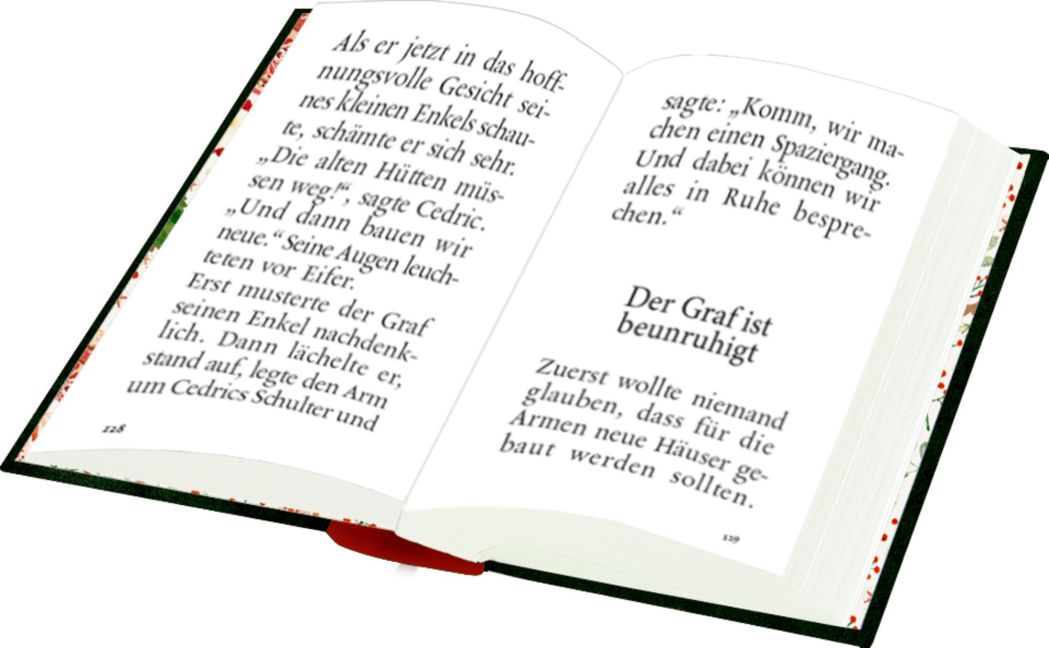 Als er jetzt in das hoff-
nungsvolle Gesicht sei-
nes kleinen Enkels schau-
te, schämte er sich sehr.
„Die alten Hütten müs-
sen weg!“, sagte Cedric.
„Und dann bauen wir
neue.“ Seine Augen leuch-
teten vor Eifer.
Erst musterte der Graf
seinen Enkel nachdenk-
lich. Dann lächelte er,
stand auf, legte den Arm
um Cedrics Schulter und
128
sagte: „Komm, wir ma-
chen einen Spaziergang.
Und dabei können wir
alles in Ruhe bespre-
chen.“
Der Graf ist
beunruhigt
Zuerst wollte niemand
glauben, dass für die
Armen neue Häuser ge-
baut werden sollten.
129